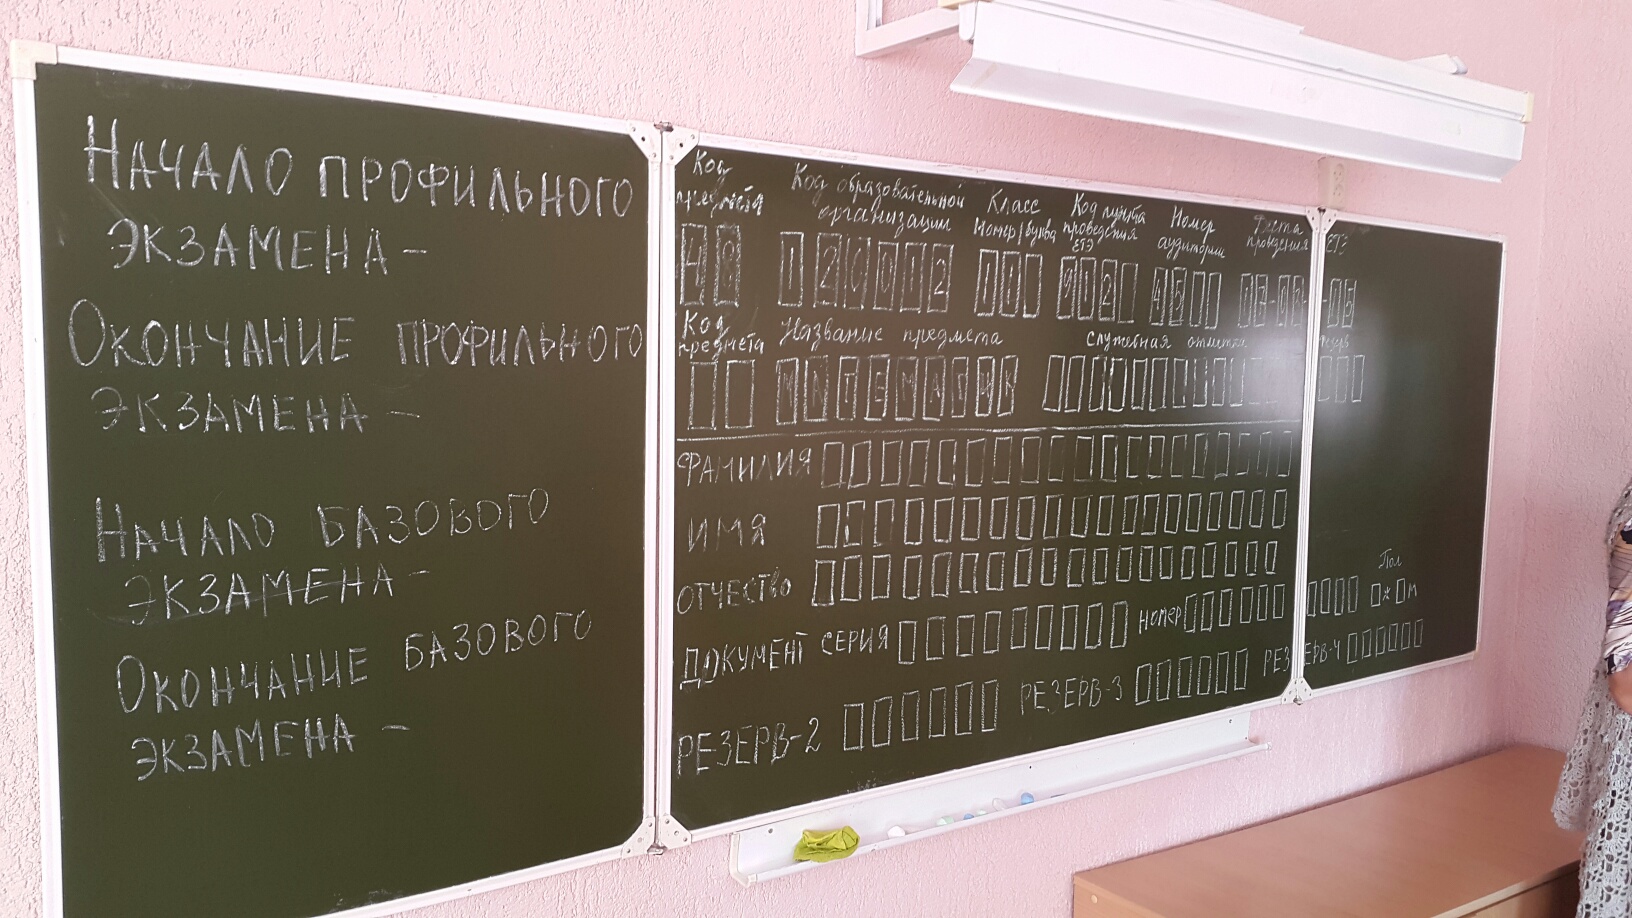 НАЧАЛО ПРОФИЛЬНОГО
ЭКЗАМЕНА –
ОКОНЧАНИЕ ПРОФИЛЬНОГО
ЭКЗАМЕНА –
НАЧАЛО БАЗОВОГО
ЭКЗАМЕНА –
ОКОНЧАНИЕ БАЗОВОГО
ЭКЗАМЕНА –
Код предмета
Код образовательной организации
Класс
Номер/буква
Код пункта проведения ЕГЭ
Номер аудитории
Дата проведения ЕГЭ
120012 11 912 45
Код предмета
Название предмета
Служебная отметка
Резерв
МАТЕМАТИК
ФАМИЛИЯ
ИМЯ
ОТЧЕСТВО
Пол
ДОКУМЕНТ СЕРИЯ Номер Ж М
РЕЗЕРВ-2 РЕЗЕРВ-3 РЕЗЕРВ-4